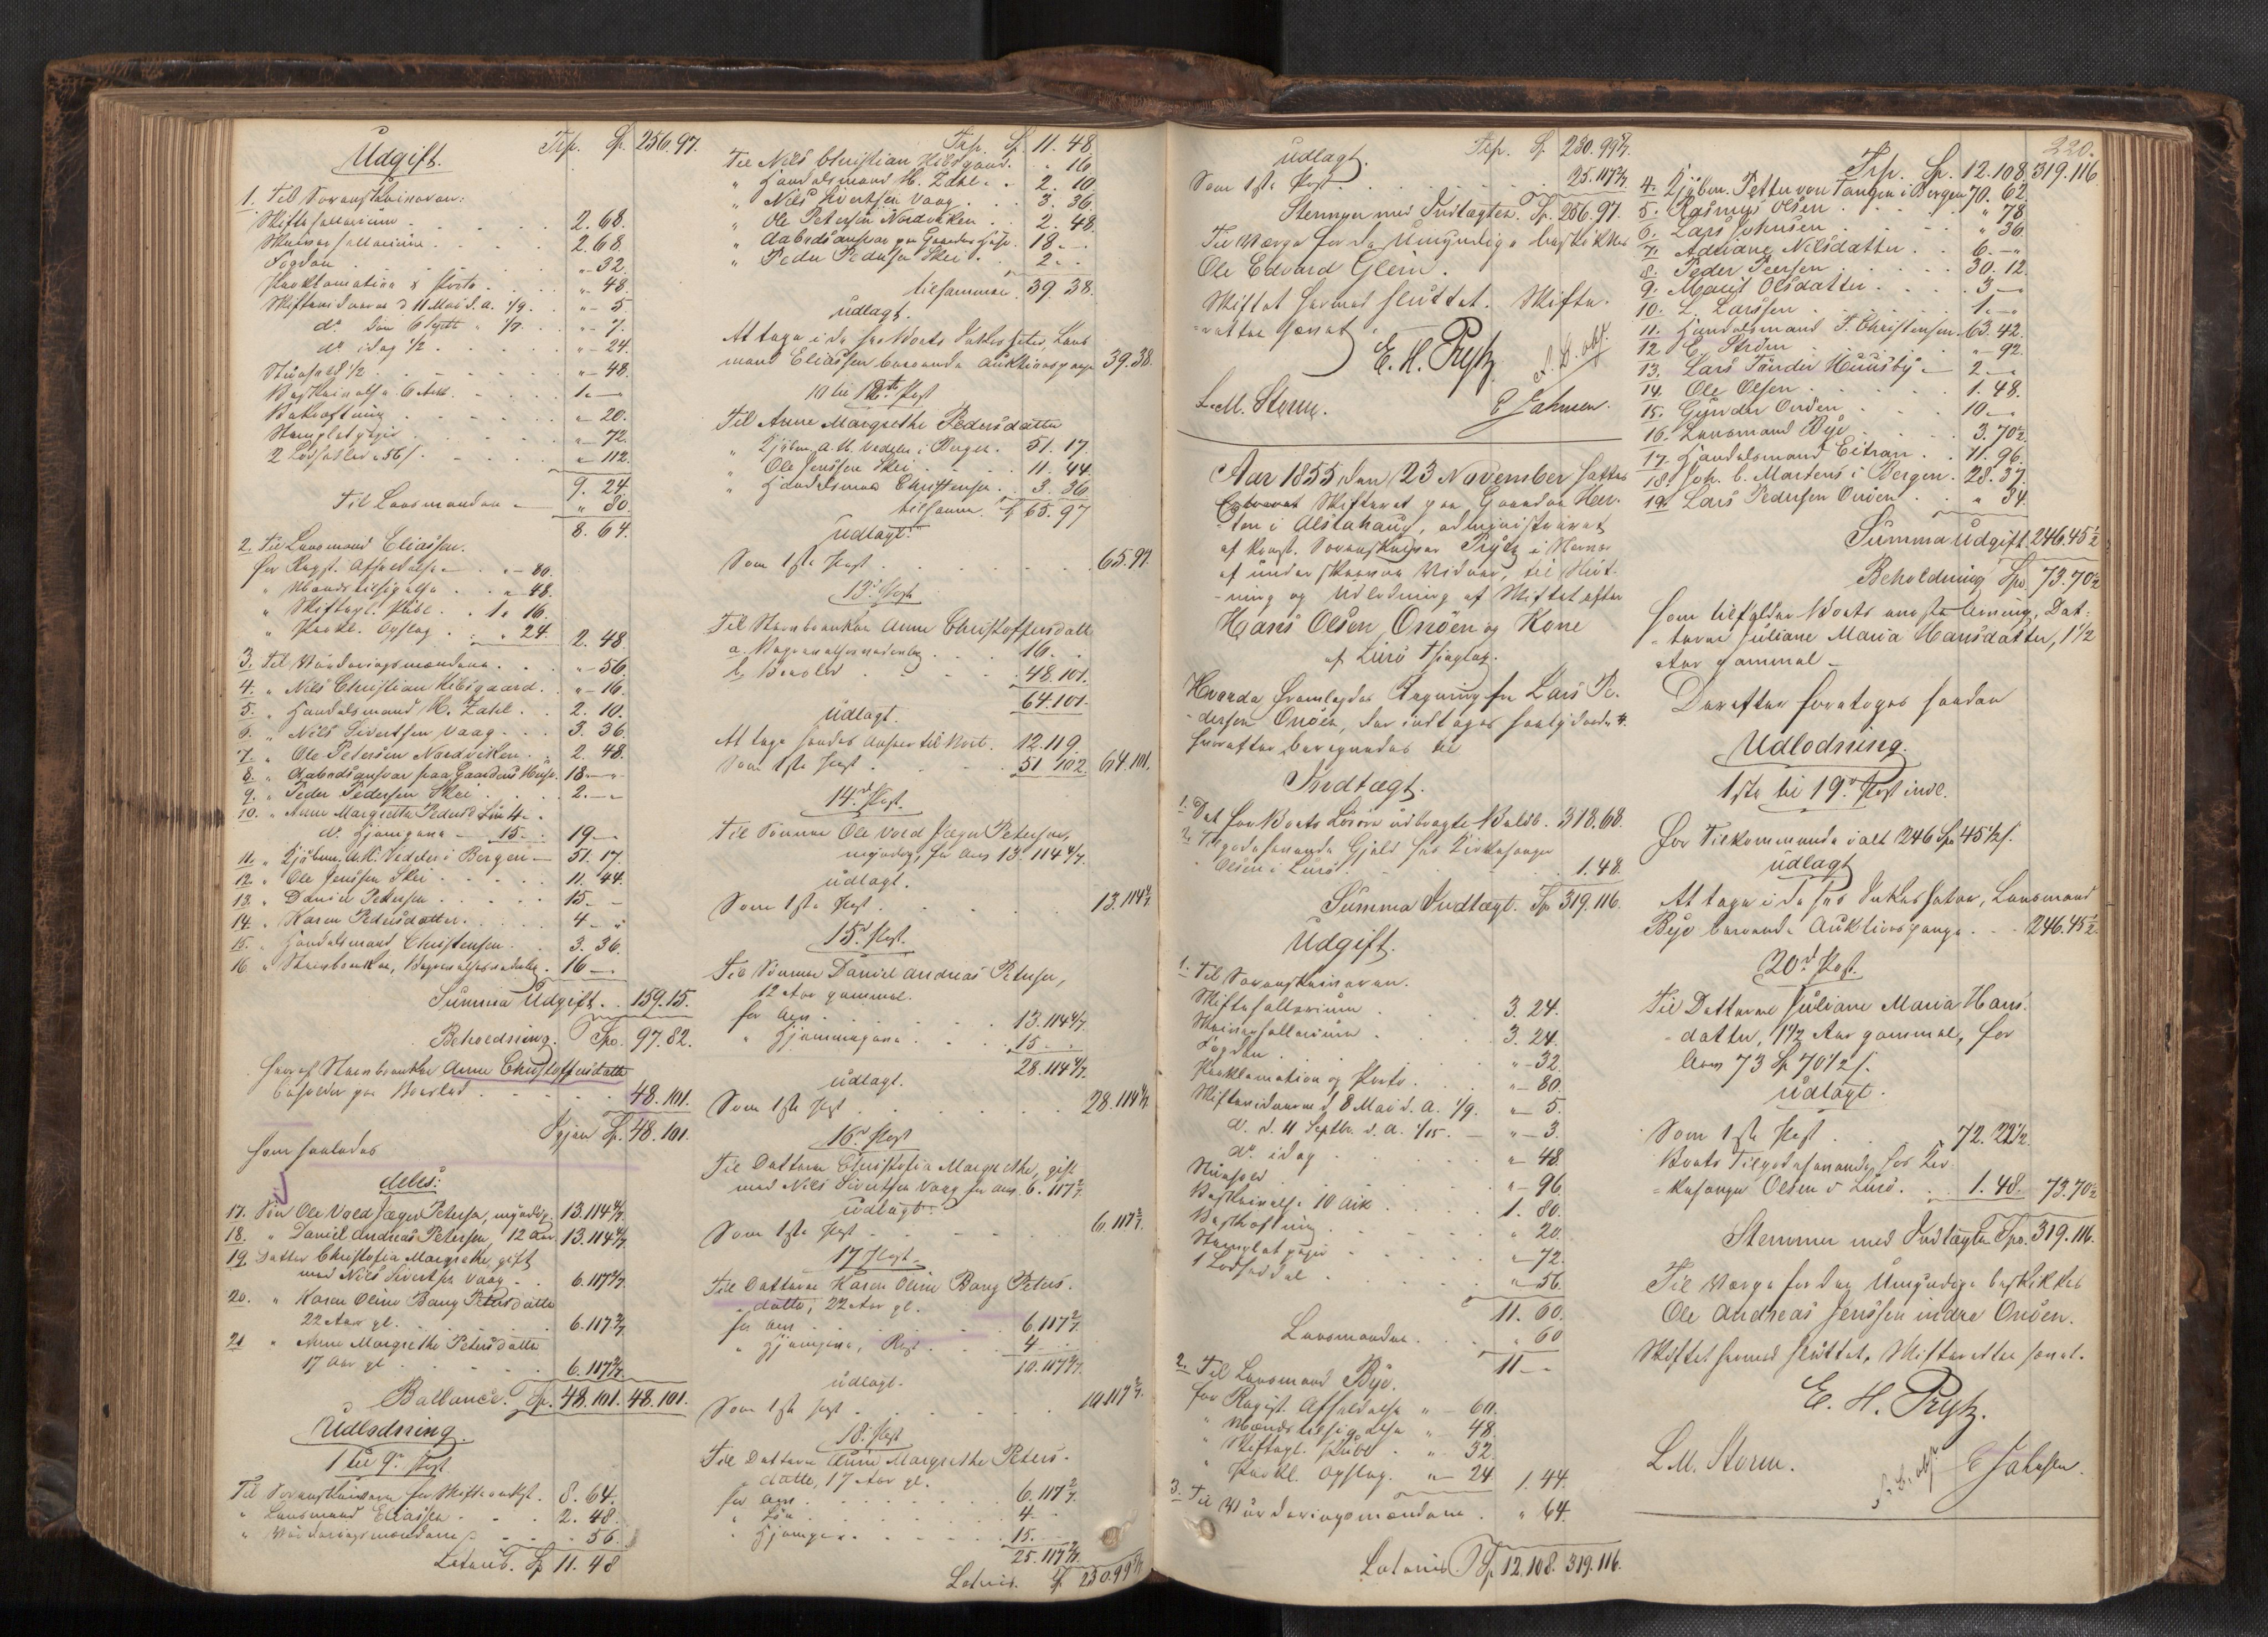 Udgift. Trp. Sp. 256.97.
1. Til Sorenskriveren:
Skiftesallarium . 2.68.
Skriversallarium . . . 2.68.
Fogden . . . „ 32.
Proklamation & Porto . „ 48.
Skiftevidnerne d 11 Mai d. a. 1/9 . „ 5.
do den 6 Septbr „ 1/7 . „ 7.
do idag 1/2 . . „ 24.
1/2 . . „ 48.
Beskrivelse 6 Ark . 1. „
Bekræftning . „ 20.
Stemplet papir . . „ 72.
2 Lodsedler à 56 s. . „ 112.
9. 24
Til Lensmanden „ 80.
8. 64.
2. Til Lensmand Eliassen.
for Regst. Afholdelse . „ 80.
„ Mænds tilsigelse . „ 48.
„ Skiftegl. Publ. . 1. 16.
„ Prokl. Opslag . „ 24. 2. 48.
3. Til Vurderingsmændene . „ 56.
4. „ Nils Christian Hilsgaard . „ 16.
5. „ Handelsmand H. Zahl . 2. 10.
6. „ Nils Sivertsen Vaag . . 3. 36.
7. „ Ole Petersen Nordviken . . 2. 48.
8. „ Aabodsansvar paa Gaardens Huse . 18. „
9. „ Peder Pedersen Skei . . 2. „
10. „ Anne Margrethe Pedersd Løn 4 „
do Hjemgave 15 „ 19. „
11. „ Kjøbm. A. M. Vedeler i Bergen 51. 17.
12. „ Ole Jenssen Skei . . . 11. 44.
13. „ Daniel Petersen . . . 15. „
14. „ Karen Petersdatter . . . 4. „
15. „ Handelsmand Christensen . . 3. 36.
16. „ Stervboenken, Begravelsesudlæg . 16. „
Summa Udgift . . 159.15.
Beholdning . Spd. 97.82.
heraf Stervboenken Anne Christoffersdatter
beholder paa Boeslod . . . 48.101.
Igjen Sp. 48.101.
som saaledes
deles:
17. Søn Ole Vold Jæger Petersen, myndig. 13.114 4/7.
18. „ Daniel Andreas Petersen, 12 Aar. 13.114 4/7.
19. Datter Christofia Margrethe, gift
med Nils Sivertsen Vaag . . 6.117 2/7.
20. „ Karen Oline Bang Petersdatter
22 Aar gl. . . . 6.117 2/7.
21. „ Anne Margrethe Petersdatter
17 Aar gl. . . . 6.117 2/7.
Ballance. Sp. 48.101. 48.101.
Udlodning.
1 til 9de Post.
Til Sorenskriveren for Skifteomkst. 8. 64.
„ Lensmand Eliassen . . 2. 48.
„ Vurderingsmændene . . . 56.
Lateris. Sp 11. 48
Trsp. Sp 11. 48
Til Nils Christian Hilsgaard . „ 16
„ Handelsmand H. Zahl . . 2. 10.
„ Nils Sivertsen Vaag . . . 3. 36.
„ Ole Petersen Nordviken . . 2. 48.
„ Aabodsansvar paa Gaardens Huse . 18. „
„ Peder Pedersen Skei . . 2. „
tilsammen . 39 38.
udlagt.
At tage i de hos Boets Inkassator, Lens-
mand Eliassen beroende Auktionspenge 39.38.
10 til 12te Post
Til Anne Margrethe Pedersdatter
„ Kjøbm. A. M. Vedeler i Bergen . 51. 17.
„ Ole Jenssen Skei . . . 11. 44.
„ Handelsmand Christensen . . 3. 36
tilsamm. Sp 65.97
udlagt.
Som 1ste Post . . . 65.97.
13de Post
Til Stervboenken Anne Christoffersdatter
a. Begravelsesudlæg . 16. „
b. Boeslod . . . 48.101.
64.101.
udlagt.
At tage hendes Ansvar til Boet . 12.119.
Som 1ste Post . . . 51.102. 64.101.
14de Post.
Til Sønnen Ole Vold Jæger Petersen,
myndig, for Arv 13.114 4/7.
udlagt.
Som 1ste Post . . . 13.114 4/7.
15de Post.
Til Sønnen Daniel Andreas Petersen,
12 Aar gammel.
for Arv . . . 13.114 4/7.
„ Hjemmegave . . . 15. „
28.114 4/7.
udlagt.
Som 1ste Post . . . 28.114 4/7.
16de Post
Til Datteren Christofia Margrethe, gift
med Nils Sivertsen Vaag for Arv . 6.117 2/7.
udlagt.
Som 1ste Post . . . 6.117 2/7.
17 Post.
Til Datteren Karen Oline Bang Peters-
datter, 22 Aar gl.
for Arv . . . 6.117 2/7.
„ Hjemgave, Rest . . 4. „
10.117 2/7.
udlagt.
Som 1ste Post . . . 10.117 2/7.
18de Post
Til Datteren Anne Margrethe Peters-
datter, 17 Aar gl.
for Arv . . . 6.117 2/7.
„ Løn . . . 4. „
„ Hjemgave . . . 15. „
25.117 2/7.
Lateris. Sp 230.99 5/7
udlagt. Trsp. Sp. 230.99 5/7.
Som 1ste Post . . . 25.117 2/7.
Stemmer med Indtægten. Sp. 256.97.
Til Værge for de Umyndige beskikkes
Ole Edvard Glein.
Skiftet hermed sluttet. Skifte-
retten hævet.
E. H. Prytz.
L. M. Storm. E Jahnsen.
Aar 1855, den 23 November sattes
Extraret Skifteret paa Gaarden Her-
ten i Alstahaug, administreret
af konst. Sorenskriver Prytz i Nærvær
af underskrevne Vidner, til Slut-
ning og Udlodning af Skiftet efter
Hans Olsen Onøen og Kone
af Lurö Thinglag.
Hvorda fremlagdes Regning fra Lars Pe-
dersen Onøen, der indtages saalydende #.
herefter beregnedes til
Indtægt.
1. Det for Boets Løsøre udbragte Beløb . 318.68.
2. Tilgodehavende Gjæld hos Kirkesanger
Olsen i Lurö . . . 1.48.
Summa Indtægt. Sp 319.116.
Udgift.
1. Til Sorenskriveren.
Skiftesallarium . . 3.24.
Skriversallarium . . 3.24.
Fogden . . . „ 32.
Proklamation og Porto . „ 80.
Skiftevidnerne d. 8 Mai d. A. 1/9. „ 5.
do. d. 11 Septbr. d. A. 1/15. „ 3.
do. idag . . . „ 48.
. . . „ 96.
Beskrivelse 10 Ark . . 1. 80.
Bekræftning . . „ 20.
Stemplet papir . . „ 72.
1 Lodseddel . . „ 56.
11. 60.
Lensmanden . . „ 60
11. „
2. Til Lensmand Bye.
for Regist. Afholdelse „ 60.
„ Mænds tilsigelse „ 48.
„ Skiftegl. Publ. „ 32.
„ Prokl. Opslag. „ 24. 1.44.
3. Til Vurderingsmændene . „ 64.
Lateris Sp 12.108. 319.116.
220.
Trsp. Sp. 12.108. 319.116
4. Kjøbm. Petter von Tangen i Bergen 70. 62.
5. Rasmus Olsen . . . „ 78
6. Lars Johnsen . . . „ 36
7. Adriane Nilsdatter . . 6. „
8. Peder Peersen . . . 30. 12.
9. Marit Olsdatter . . . 3. „
10. L. Larssen . . . 1. „
11. Handelsmand F. Christensen . 63.42.
12. E. Strøm . . . „ 92.
13. Lars Tønder Huusby . 2. „
14. Ole Olsen . . . 1.48.
15. Gunder Onøen . . . 10. „
16. Lensmand Bye . . . 3.70 1/2.
17. Handelsmand Eitran . . 11. 96.
18. Joh. C. Martens i Bergen . 28.37.
19. Lars Pedersen Onøen . . „ 34.
Summa Udgift. 246.45 1/2
Beholdning Spd. 73.70 1/2
som tilfalder Boets eneste Arving, Dat-
teren Juliane Maria Hansdatter, 1 1/2
Aar gammel.
Derefter foretoges saadan
Udlodning.
1ste til 19de Post incl.
For Tilkommende ialt 246 Spd 45 1/2 s.
udlagt
At tage i de hos Inkassator, Lensmand
Bye beroende Auktionspenge . . 246.45 1/2.
20de Post.
Til Datteren Juliane Maria Hans-
datter, 1 1/2 Aar gammel, for
Arv 73 Sp 70 1/2 s.
udlagt.
Som 1ste Post . 72. 22 1/2.
Boets Tilgodehavende hos Kir-
kesanger Olsen i Lurö . . 1.48. 73.70 1/2
Stemmer med Indtægten Spd. 319.116.
Til Værge for den Umyndige beskikkes
Ole Andreas Jenssen indre Onøen.
Skiftet hermed sluttet, Skifteretten hævet.
E. H. Prytz.
L. M. Storm. E Jahnsen.